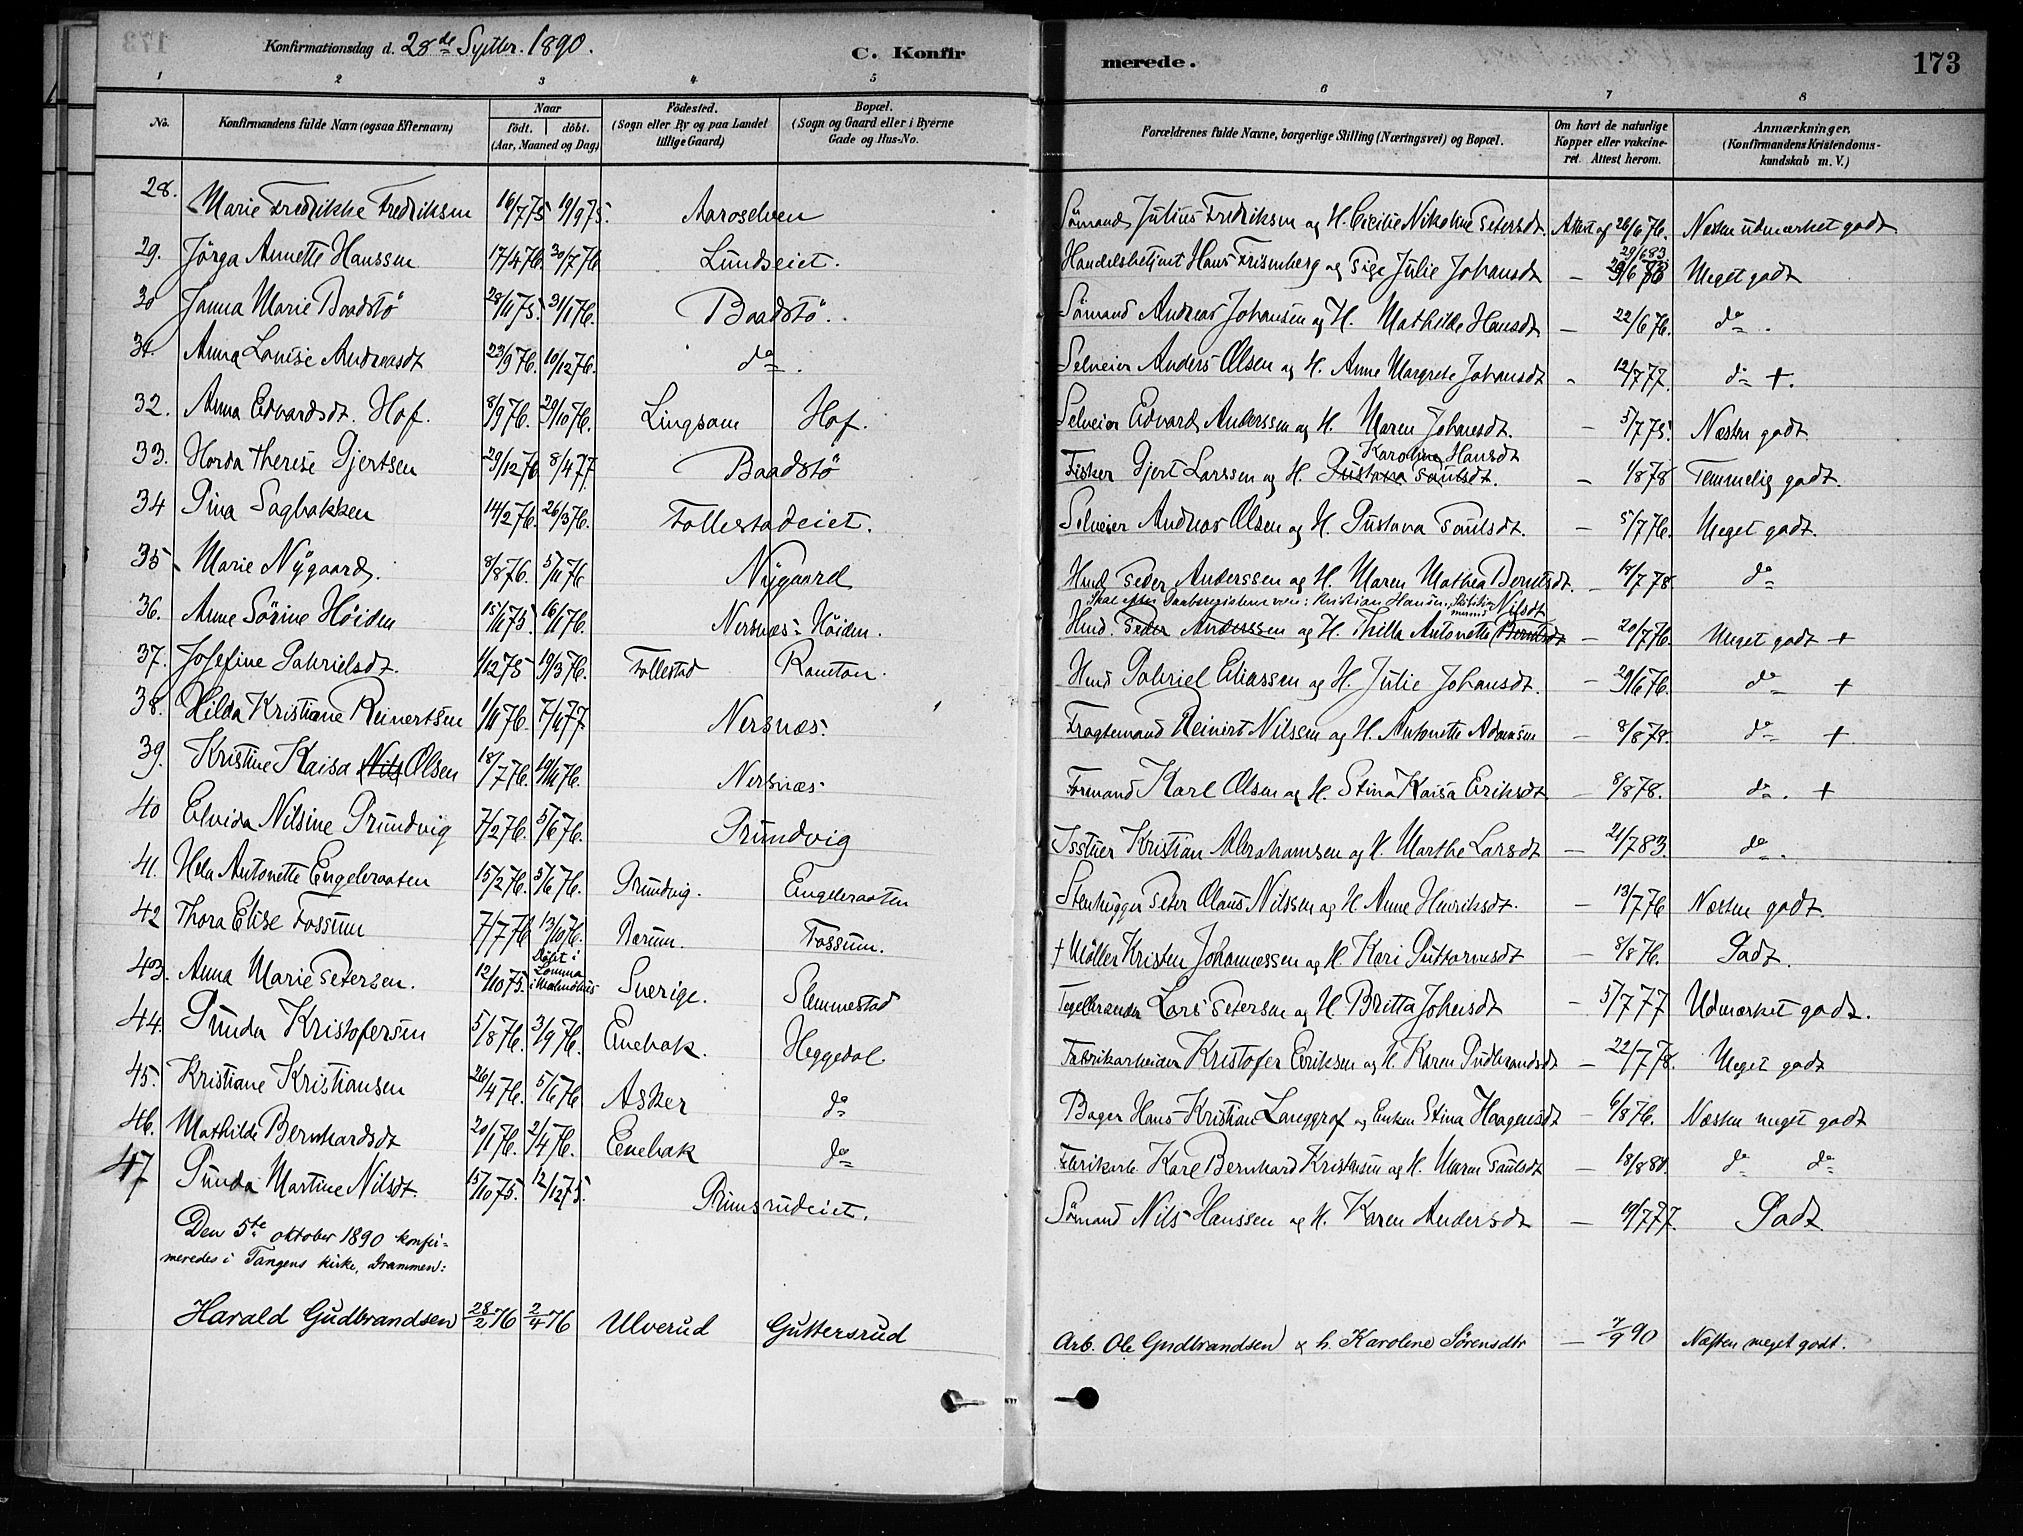 Konfirmationsdag d. 28de Septbr. 1890.
C. Konfirmerede.
173
1 2 3 4 5 6 7 8
No. Konfirmandens fulde Navn (ogsaa Efternavn) Naar födt. döbt. (Aar, Maaned og Dag) Födested. (Sogn eller By og paa Landet tillige Gaard) Bopæl. (Sogn og Gaard eller i Byerne Gade og Hus-No. Forældrenes fulde Navne, borgerlige Stilling (Næringsvei) og Bopæl. Om havt de naturlige Kopper eller vakcineret. Attest herom. Anmærkninger. (Konfirmandens Kristendomskundskab m. V.)
28. Marie Fredrikke Fredriksen 16/7 75 19/9 75. Aaroselven Sömand Julius Fredriksen og H. Cecilie Nikoline Petersdt. Attest af 26/6 76. Næsten udmærket godt
29. Jörga Annette Hanssen 17/4 76. 30/7 76 Lundseiet. Handelsbetjent Hans Frisenberg og Pige Julie Johansdt — 29/6 83 Meget godt
30 Janna Marie Baadstö 28/11 75. 31/1 76. Baadstö. Sömand Andreas Johansen og H. Mathilde Hansdt — 22/6 76. do.
31. Anna Lovise Andersdt 23/9 76. 10/12 76. do. Selveier Anders Olsen og H. Anne Margrete Johansdt - 12/7 77. do +.
32. Anna Edvardsdt. Hof. 8/9 76. 29/10 76. Lingsom Hof. Selveier Edvard Anderssen og H. Maren Johansdt. — 5/7 75. Næsten godt
33. Horda Therese Gjertsen 29/12 76 8/4 77 Baadstö Fisker Gjert Larssen og H. Gustava Paulsdt. Karoline Hansdt — 1/8 78 Temmelig godt.
34 Gina Sagbakken 14/2 76. 26/3 76. Follestadeiet. Selveier Andreas Olsen og H. Gustava Paulsdt. — 5/7 76. Meget godt.
35 Marie Nÿgaard. 8/8 76. 5/11 76 Nÿgaard Husd Peder Anderssen og H. Maren Mathea Berntsdt. — 18/7 78. do
Skal efter Daabsregisteret være: Kristian Hansen, Nilsdt
36. Anne Sörine Höiden 15/11 75. 16/1 76. Nersnæs: Höiden. Husd. Peder Anderssen og H. Thilla Antonette Berntsdt — 20/7 76. Meget godt +
37. Josefine Gabrielsdt. 1/12 75 19/3 76. Follestad Ramton. Husd Gabriel Eliassen og H. Julie Johansdt. — 29/6 76. do +
38. Hilda Kristiane Reinertsen 1/11 76. 7/1 77. Nersnæs: Fragtemand Reinert Nilsen og H. Antonette Adamsen — 8/8 78. do +
39. Kristine Kaisa Nils Olsen 18/7 76. 19/11 76. Nersnæs: Formand Karl Olsen og H. Stina Kaisa Eriksdt — 8/8 78. do. +
40 Elvida Nilsine Grundvig 7/2 76. 5/6 76. Grundvig Isstuer Kristian Abrahamsen og H. Marthe Larsdt — 21/7 83. do.
41. Hela Antonette Engebraaten 15/2 76. 5/6 76. Grundvig. Engebraaten Stenhugger Peter Olaus Nilssen og H Anne Henriksdt. — 13/7 76 Næsten godt.
42 Thora Elise Fossum 7/7 76 13/10 76. Bærum. Fossum. + Möller Kristen Johannessen og H. Kari Guttormsdt — 8/8 76. Godt.
43. Anna Marie Petersen. 12/10 75. Döbt i Lomma i Malmöhus Sverige. Slemmestad Teglbrænder Lars Petersen og H Britta Johansdt — 5/7 77 Udmærket godt.
44. Gunda Kristofersen 5/8 76. 3/9 76. Enebak. Heggedal. Fabrikarbeider Kristofer Eriksen og H. Karen Gudbrandsdt — 22/7 78. Meget godt
45. Kristiane Kristiansen 26/4 76. 5/6 76 Asker do Bager Hans Kristian Langgrof og Enken Stina Haagensdt — 6/8 76. Næsten meget godt
46. Mathilde Bernhardsdt 20/1 76. 2/4 76. Enebak do Fbrikarb. Karl Bernhard Kristensen og H. Maren Paulsdt — 18/8 80. do do
47 Gunda Martine Nilsdt. 15/10 75. 12/12 75. Grimsrudeiet. Sömand Nils Hanssen og H. Karen Andersdt — 19/7 77. Godt
Den 5te oktober 1890 konfirmeredes i Tangens kirke, Drammen:
Harald Gudbrandsen 28/2 76 2/4 76 Ulverud Guttersrud Arb. Ole Gudbrandsen & h. Karoline Sörensdtr — 7/9 90 Næsten meget godt.